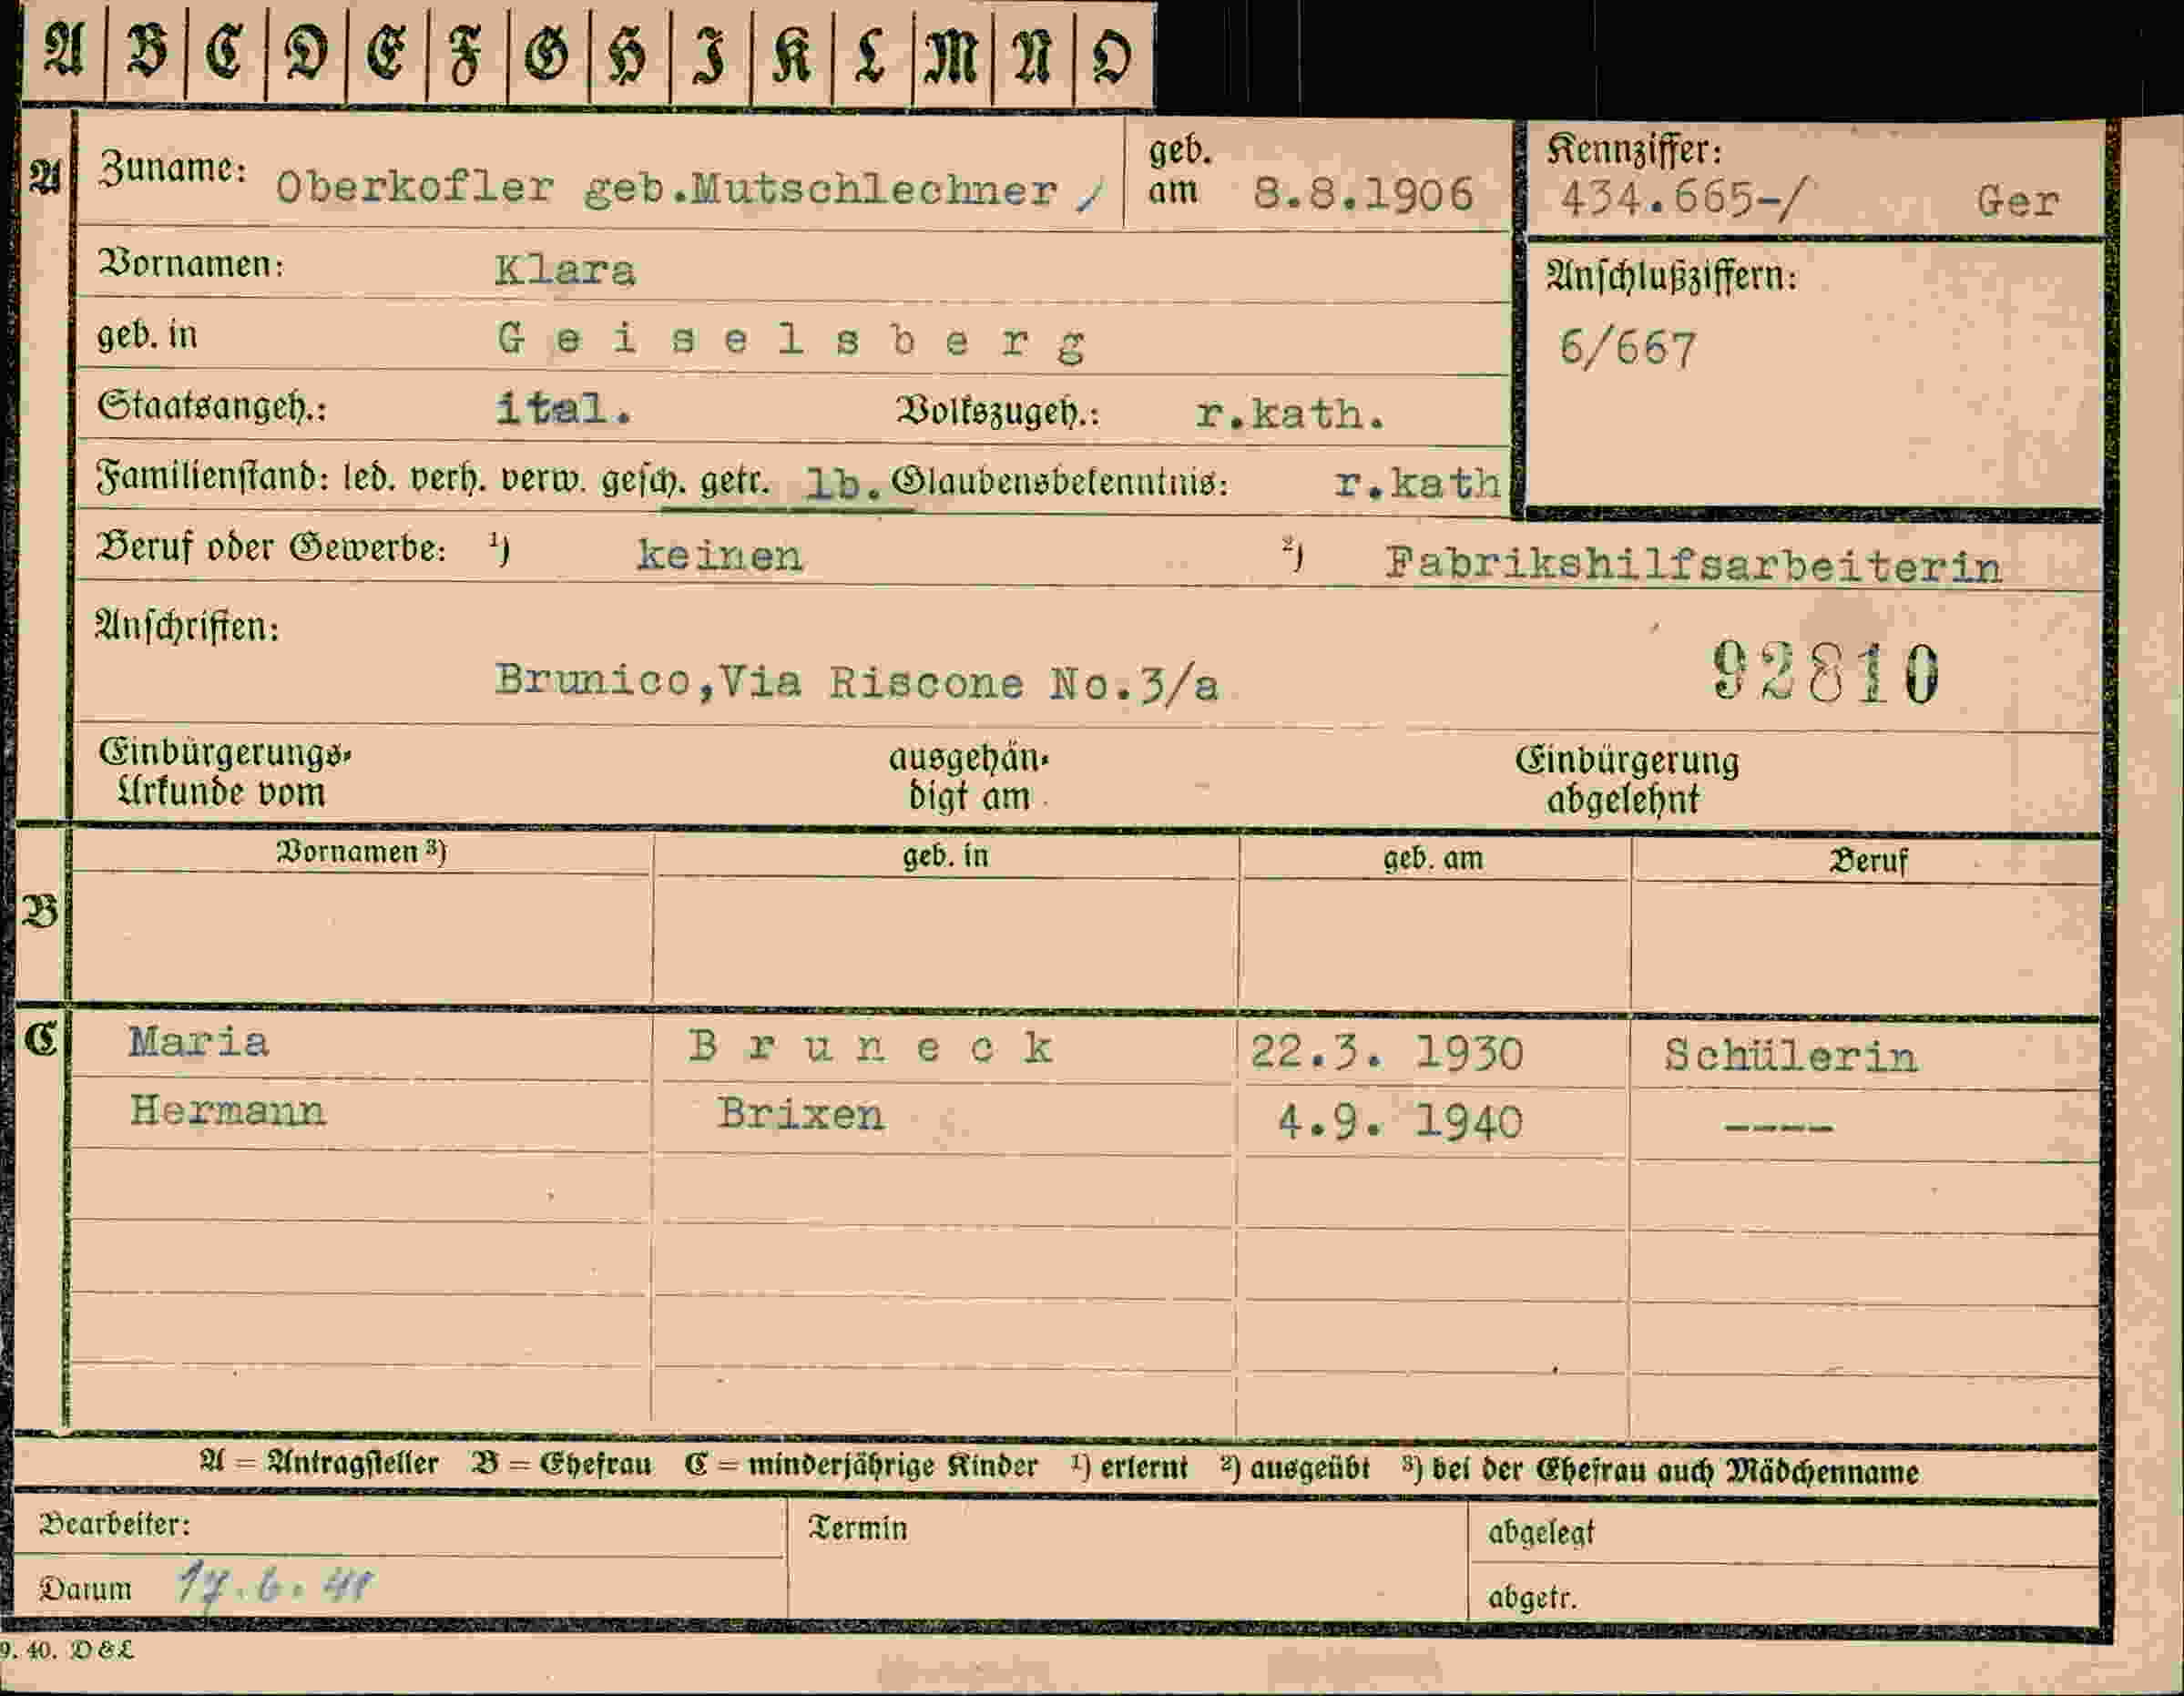 A B C D E F G H I K L M N O
A Zuname: Oberkofler geb.Mutschlechner / geb. am 8.8.1906 Kennziffer: 434.665-/ Ger
Vornamen: Klara
Anschlußziffern:
geb. in Geiselsberg
6/667
Staatsangeh.: ital. Volkszugeh.: r.kath.
Familienstand: led. verh. verw. gesch. getr. lb. Glaubensbekenntnis: r.kath
Beruf oder Gewerbe: ¹) keinen ²) Fabrikshilfsarbeiterin
Anschriften:
Brunico,Via Riscone No.3/a 92810
Einbürgerungs- ausgehän- Einbürgerung
Urkunde vom digt am abgelehnt
Vornamen ³) geb. in geb. am Beruf
B
C Maria Bruneck 22.3. 1930 Schülerin
Hermann Brixen 4.9. 1940 ----
A = Antragsteller B = Ehefrau C = minderjährige Kinder ¹) erlernt ²) ausgeübt ³) bei der Ehefrau auch Mädchenname
Bearbeiter: Termin abgelegt
Datum 17.6.41 abgetr.
9. 40. D & L